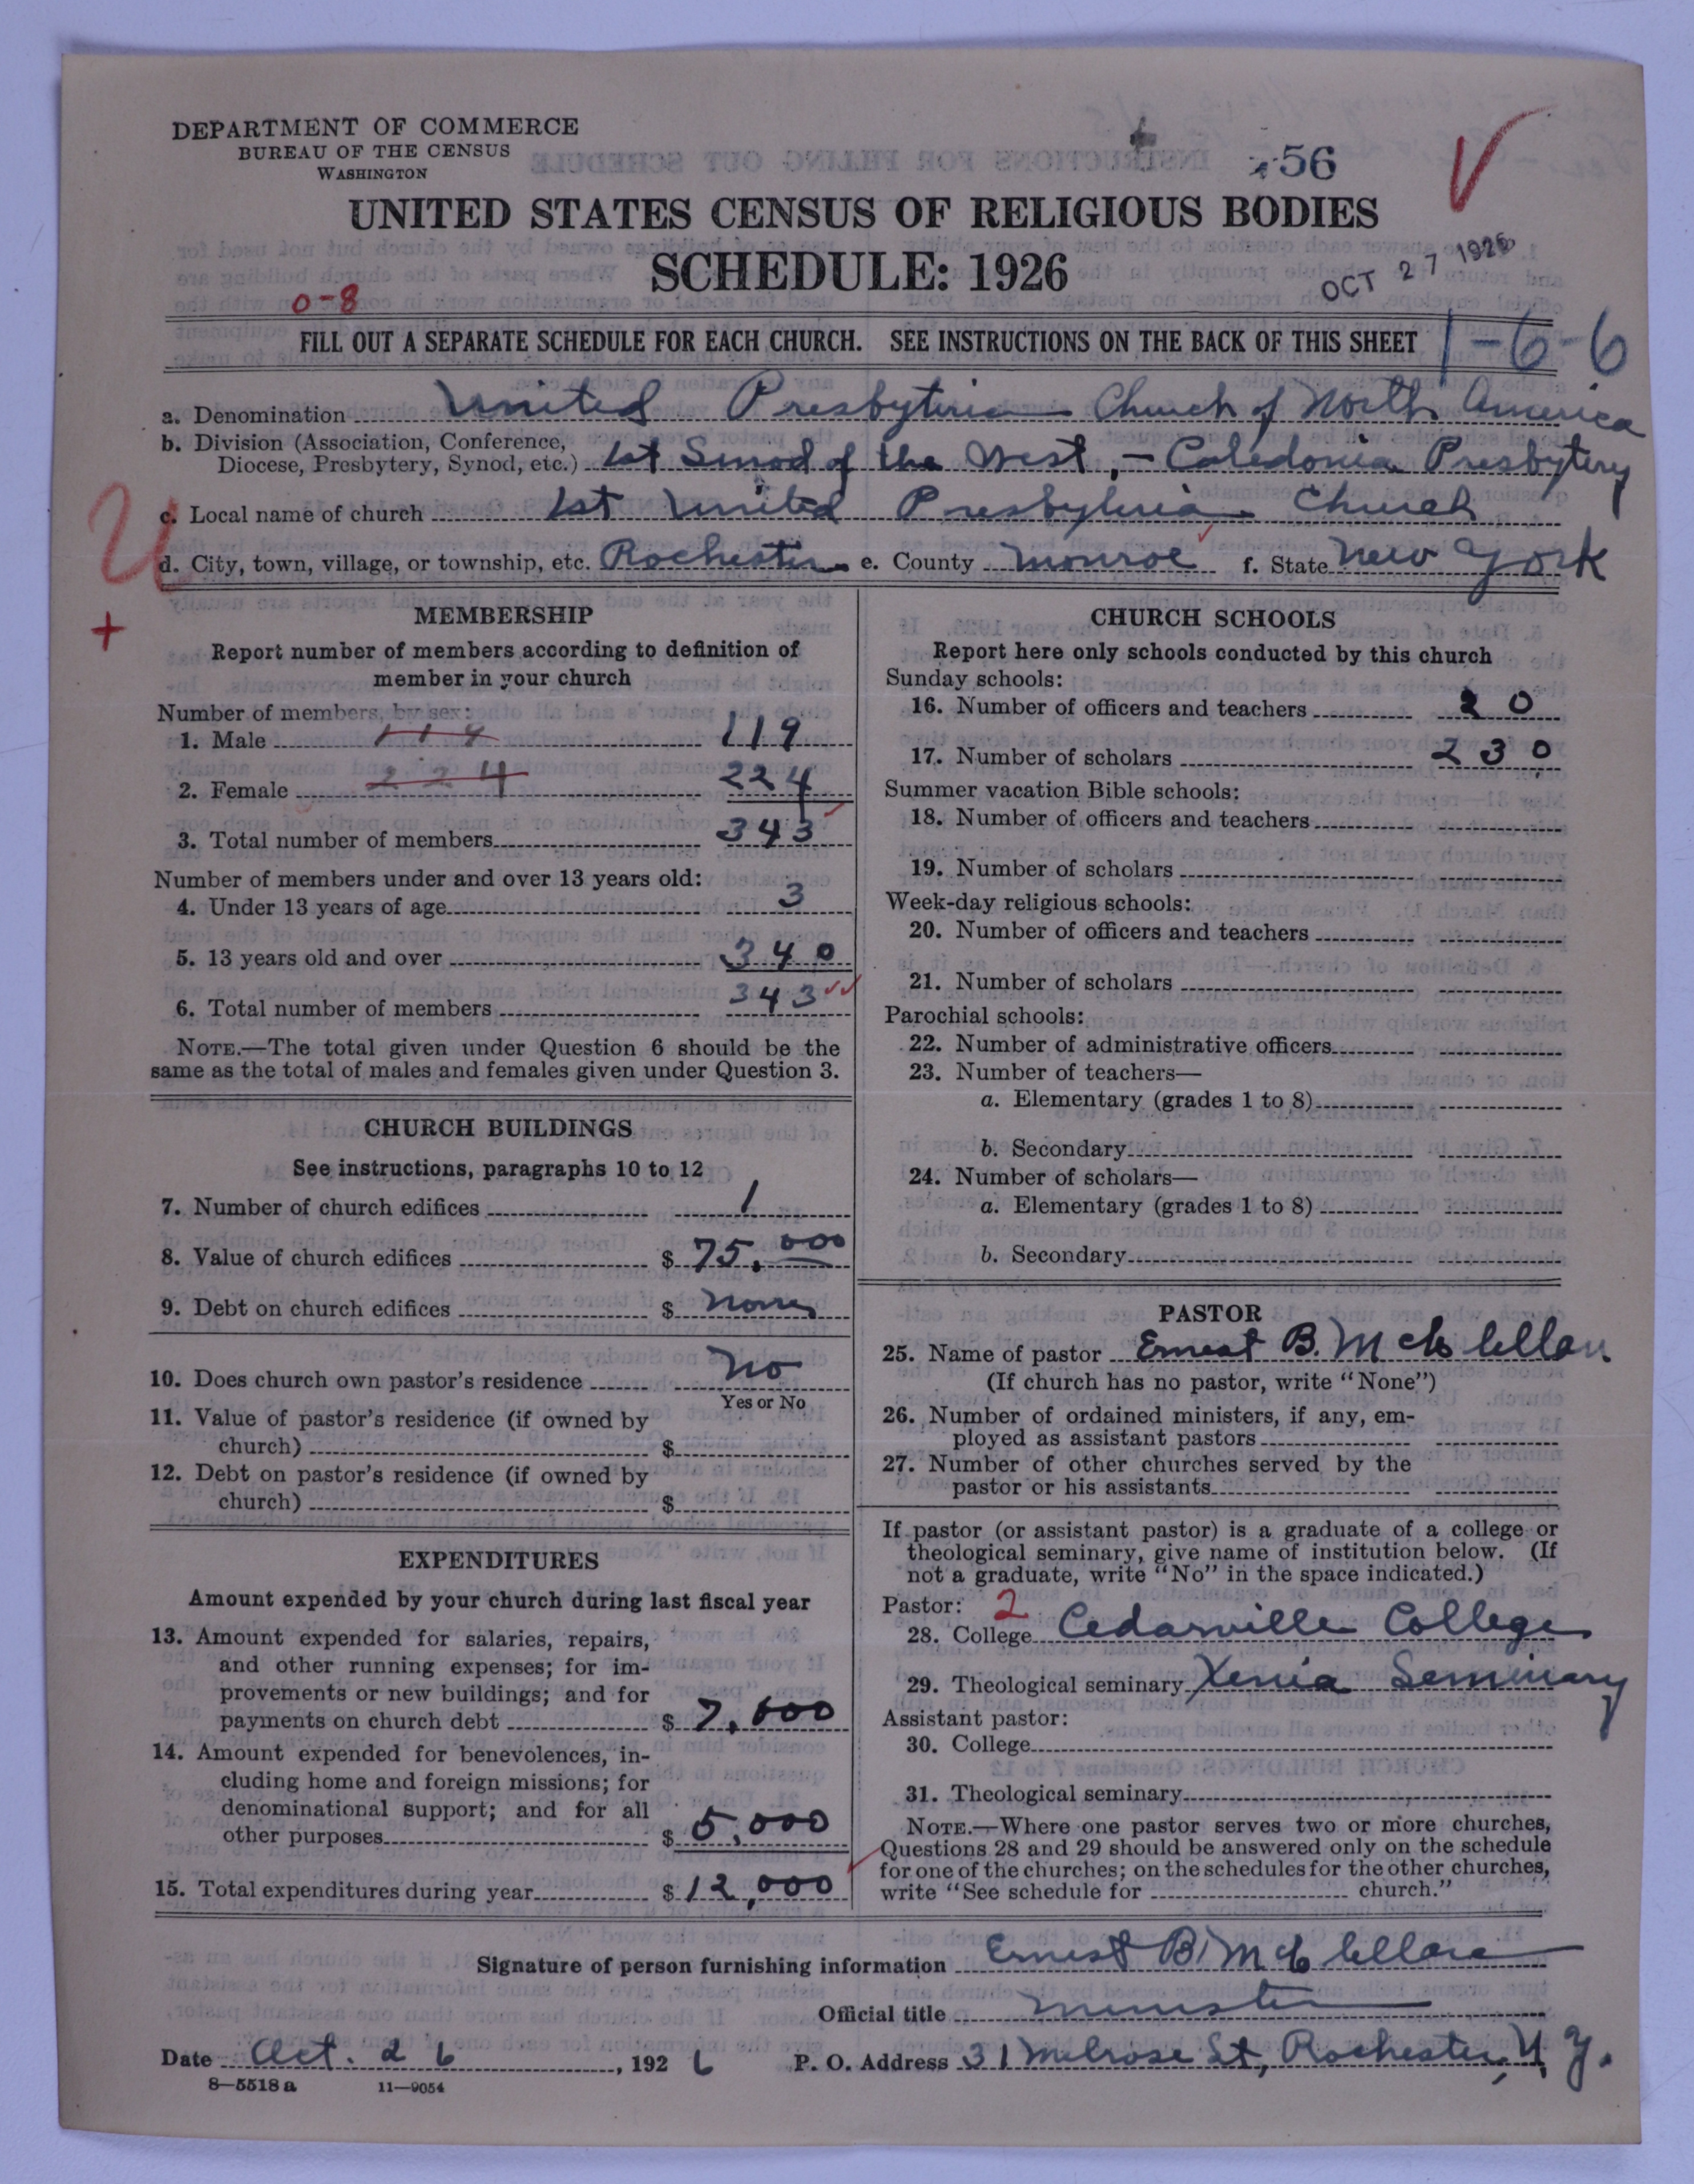 DEPARTMENT OF COMMERCE
BUREAU OF THE CENSUS
WASHINGTON
56
UNITED STATES CENSUS OF RELIGIOUS BODIES
SCHEDULE: 1926
OCT 27 1926
0-8
FILL OUT A SEPARATE SCHEDULE FOR EACH CHURCH. SEE INSTRUCTIONS ON THE BACK OF THIS SHEET
1-6-6
a. Denomination United Presbyterian Church of North America
b. Division (Association, Conference, Diocese, Presbytery, Synod, etc.) 1st Sinod of the West, - Caledonia Presbytery
c. Local name of church 1st United Presbyterian Church
d. City, town, village, or township, etc. Rochester e. County Monroe f. State New York
U
+
MEMBERSHIP
Report number of members according to definition of
member in your church
Number of members, by sex:
1. Male 119 119
2. Female 224 224
3. Total number of members 343
Number of members under and over 13 years old:
4. Under 13 years of age 3
5. 13 years old and over 340
6. Total number of members 343
NOTE.—The total given under Question 6 should be the
same as the total of males and females given under Question 3.
CHURCH BUILDINGS
See instructions, paragraphs 10 to 12
7. Number of church edifices 1
8. Value of church edifices $ 75,000
9. Debt on church edifices $ None
10. Does church own pastor's residence No
Yes or No
11. Value of pastor's residence (if owned by
church) $
12. Debt on pastor's residence (if owned by
church) $
EXPENDITURES
Amount expended by your church during last fiscal year
13. Amount expended for salaries, repairs,
and other running expenses; for im-
provements or new buildings; and for
payments on church debt $ 7,000
14. Amount expended for benevolences, in-
cluding home and foreign missions; for
denominational support; and for all
other purposes $ 5,000
15. Total expenditures during year $ 12,000
CHURCH SCHOOLS
Report here only schools conducted by this church
Sunday schools:
16. Number of officers and teachers 20
17. Number of scholars 230
Summer vacation Bible schools:
18. Number of officers and teachers
19. Number of scholars
Week-day religious schools:
20. Number of officers and teachers
21. Number of scholars
Parochial schools:
22. Number of administrative officers
23. Number of teachers—
a. Elementary (grades 1 to 8)
b. Secondary
24. Number of scholars—
a. Elementary (grades 1 to 8)
b. Secondary
PASTOR
25. Name of pastor Ernest B. McClellan
(If church has no pastor, write "None")
26. Number of ordained ministers, if any, em-
ployed as assistant pastors
27. Number of other churches served by the
pastor or his assistants
If pastor (or assistant pastor) is a graduate of a college or
theological seminary, give name of institution below. (If
not a graduate, write "No" in the space indicated.)
Pastor: 2
28. College Cedarville College
29. Theological seminary Xenia Seminary
Assistant pastor:
30. College
31. Theological seminary
NOTE.—Where one pastor serves two or more churches,
Questions 28 and 29 should be answered only on the schedule
for one of the churches; on the schedules for the other churches,
write "See schedule for church."
Signature of person furnishing information Ernest B. McClellan
Official title Minister
Date Oct. 26, 1926 P. O. Address 31 Melrose St, Rochester, N. Y.
8—5518 a 11—9054